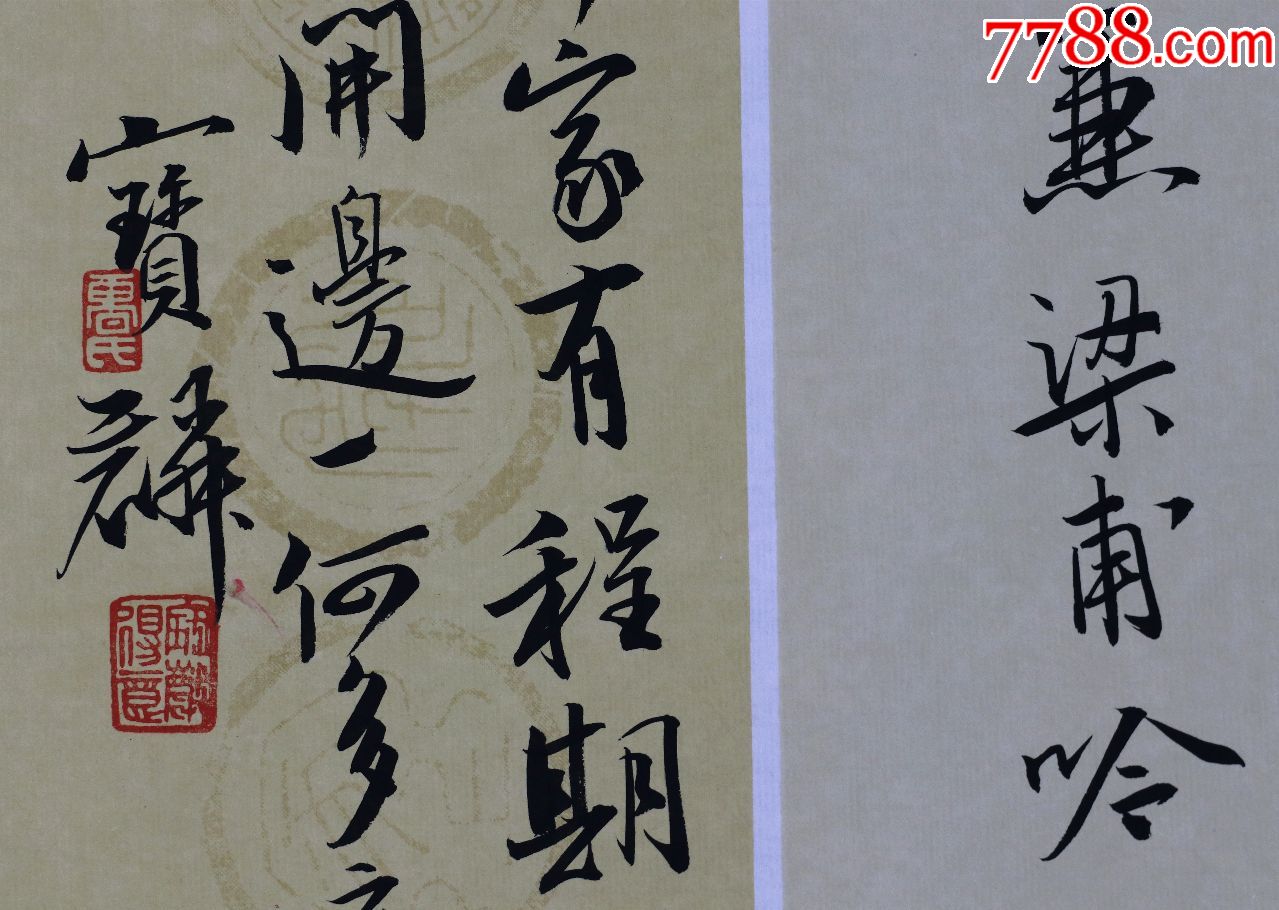 7788.com
為梁甫吟
家有程期
開邊一何多
寶麟